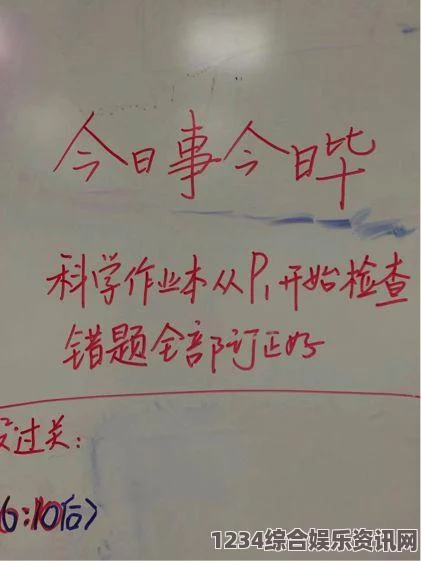 今日事今日毕
科学作业本从P1开始检查
错题全部订正好
没过关:
6:10后>
1234综合娱乐资讯网